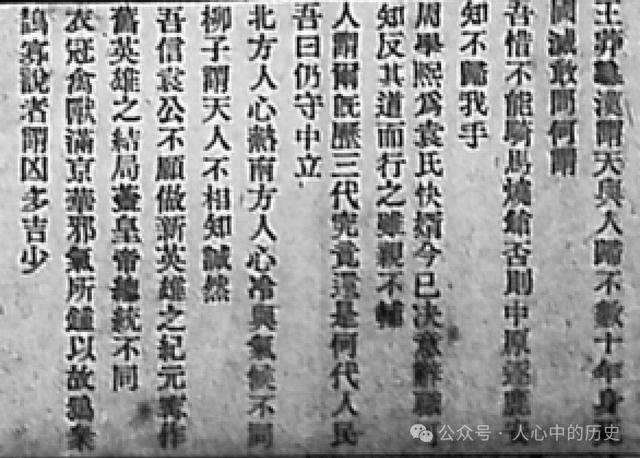 王莽纂漢謂天與人歸不數十年身
國滅敢問何謂
吾惜不能騎馬燒鎗否則中原逐鹿
知不歸我手
周學熙為袁氏快婿今已決意辭職
知反其道而行之雖親不輔
人謂爾既歷三代究竟還是何代人民
吾曰仍守中立
北方人心熱南方人心冷與氣候不同
柳子謂天人不相知誠然
吾信袁公不願做新英雄之紀元寧作
舊英雄之結局蓋皇帝總統不同
衣冠禽獸滿京華邪氣所鍾以故鴉衆
鵲寡說者謂凶多吉少
公众号·人心中的历史